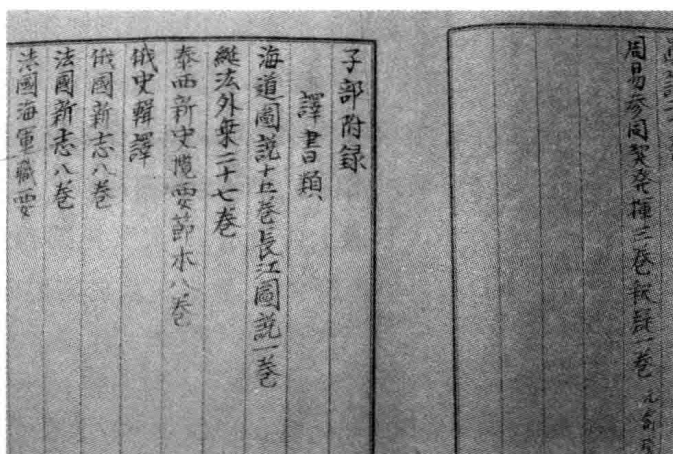 周易參同契發揮三卷釈疑一卷 元俞
子部附錄
譯書類
海道圖説十五卷長江圖説一卷
法外乗二十七卷
泰西新史攬要節本八卷
俄史輯譯
俄國新志八卷
法國新志八卷
法國海軍職要